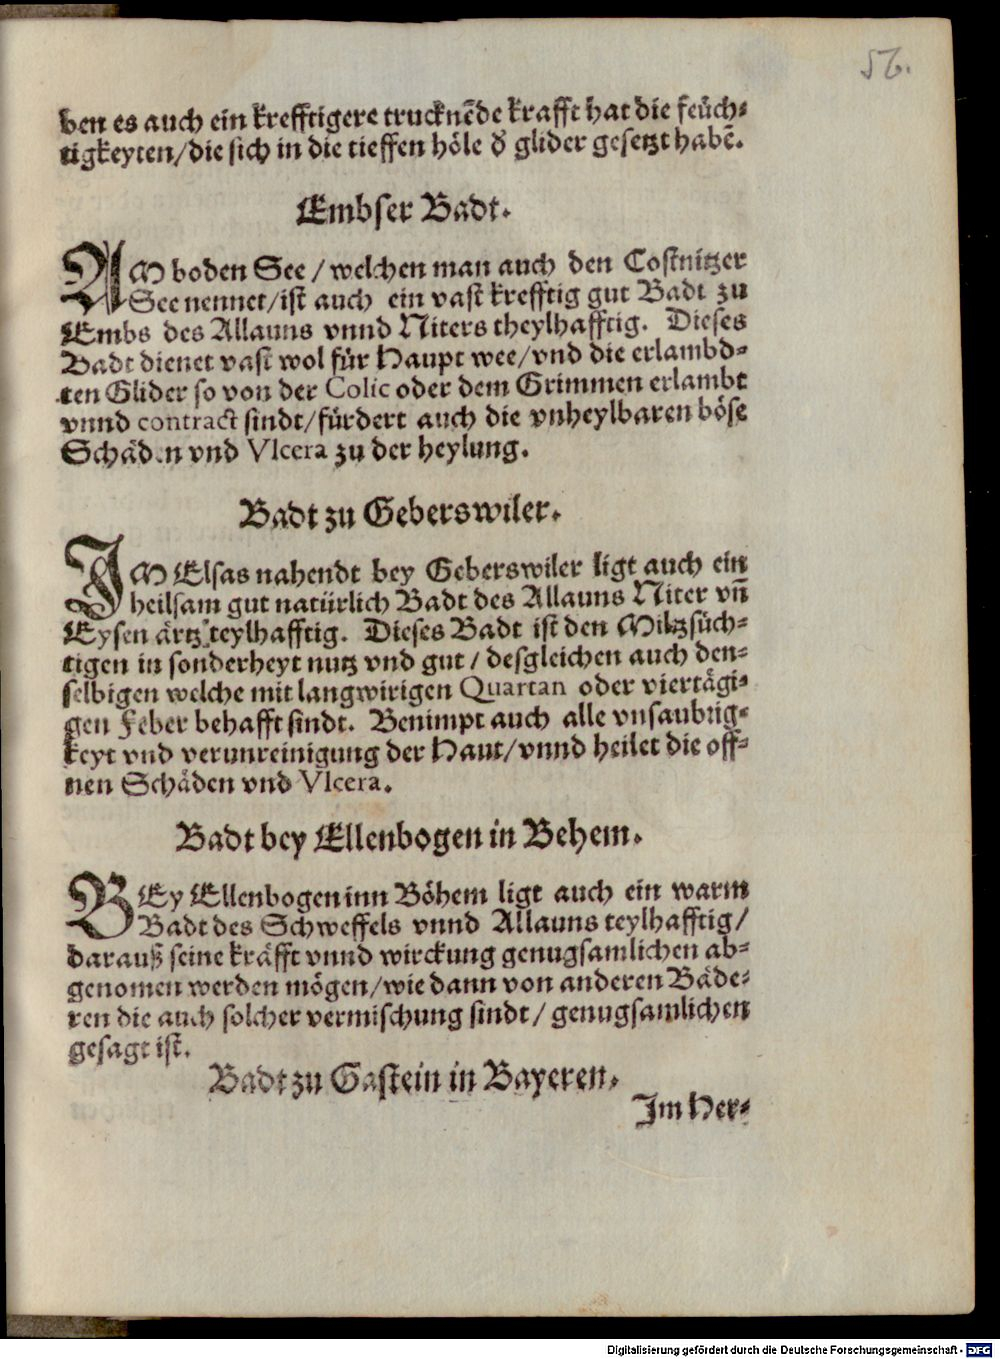 56.
ben es auch ein krefftigere trucknēde krafft hat die feüch⸗
tigkeyten/die sich in die tieffen höle d̕ glider gesetzt habē.
Embser Badt.
AM boden See/welchen man auch den Costnitzer
See nennet/ist auch ein vast krefftig gut Badt zu
Embs des Allauns vnnd Niters theylhafftig. Dieses
Badt dienet vast wol für Haupt wee/vnd die erlambd⸗
ten Glider so von der Colic oder dem Grimmen erlambt
vnnd contract sindt/fürdert auch die vnheylbaren böse
Schäden vnd Vlcera zu der heylung.
Badt zu Geberswiler.
IM Elsas nahendt bey Geberswiler ligt auch ein
heilsam gut natürlich Badt des Allauns Niter vn̄
Eysen ärtz teylhafftig. Dieses Badt ist den Miltzsüch⸗
tigen in sonderheyt nutz vnd gut/desgleichen auch den⸗
selbigen welche mit langwirigen Quartan oder viertägi⸗
gen Feber behafft sindt. Benimpt auch alle vnsaubrig⸗
keyt vnd verunreinigung der Haut/vnnd heilet die off⸗
nen Schäden vnd Vlcera.
Badt bey Ellenbogen in Behem.
BEy Ellenbogen inn Böhem ligt auch ein warm
Badt des Schweffels vnnd Allauns teylhafftig/
darauß seine kräfft vnnd wirckung genugsamlichen ab⸗
genomen werden mögen/wie dann von anderen Bäde⸗
ren die auch solcher vermischung sindt/genugsamlichen
gesagt ist.
Badt zu Gastein in Bayeren.
Im Her⸗
Digitalisierung gefördert durch die Deutsche Forschungsgemeinschaft - DFG